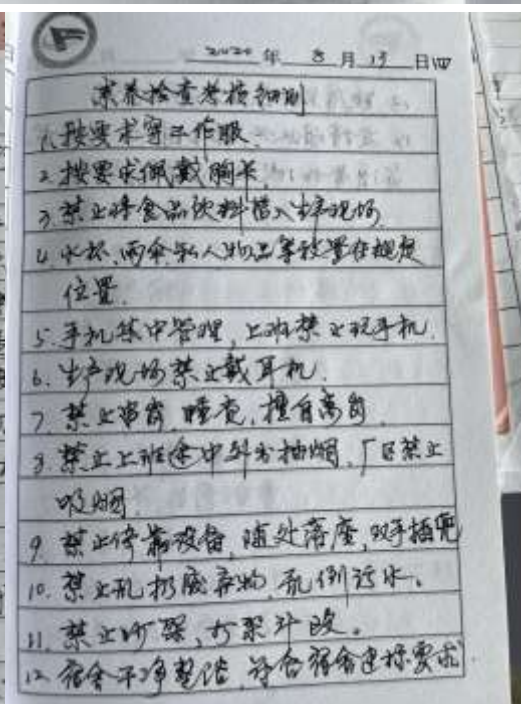 2020年 8月13日 四
素养检查考核细则
1. 按要求穿工作服.
2. 按要求佩戴胸卡.
3. 禁止将食品饮料带入生产现场
4. 水杯、雨伞、私人物品等放置在规定
位置.
5. 手机集中管理, 上班禁止玩手机.
6. 生产现场禁止戴耳机.
7. 禁止串岗, 睡觉, 擅自离岗.
8. 禁止上班途中外出抽烟, 厂区禁止
吸烟.
9. 禁止倚靠设备, 随处落座, 双手插兜
10. 禁止乱扔废弃物, 乱倒污水.
11. 禁止吵架, 打架斗殴.
12. 宿舍干净整洁, 符合宿舍达标要求.